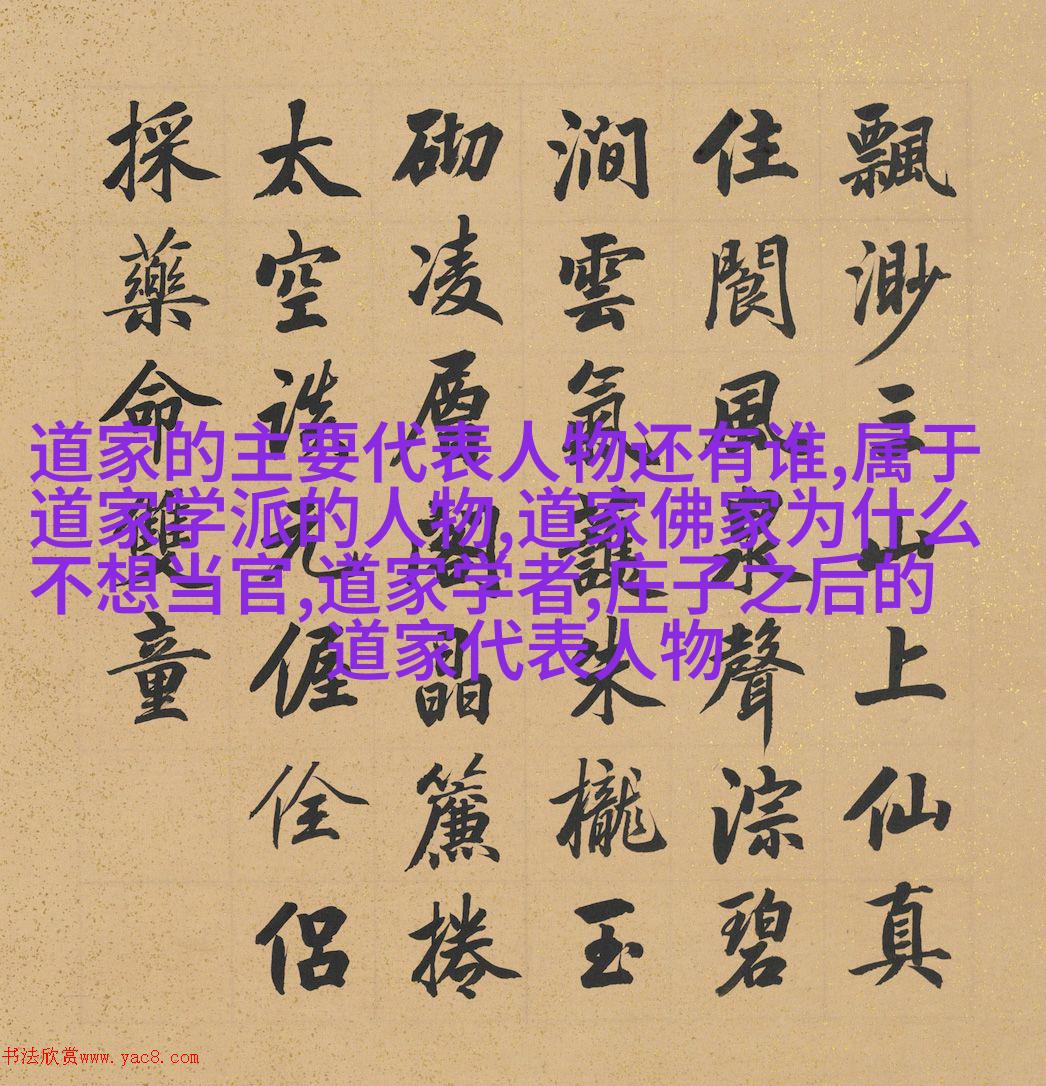 飄渺三山上仙真
住閬風泉聲淙碧
澗雲氣護朱櫳玉
砌凌層閣晶簾捲
太空元偓佺侶
採藥命童
道家的主要代表人物还有谁,属于
道家学派的人物,道家佛家为什么
不想当官,道家学者,庄子之后的
道家代表人物
书法欣赏www.yac8.com